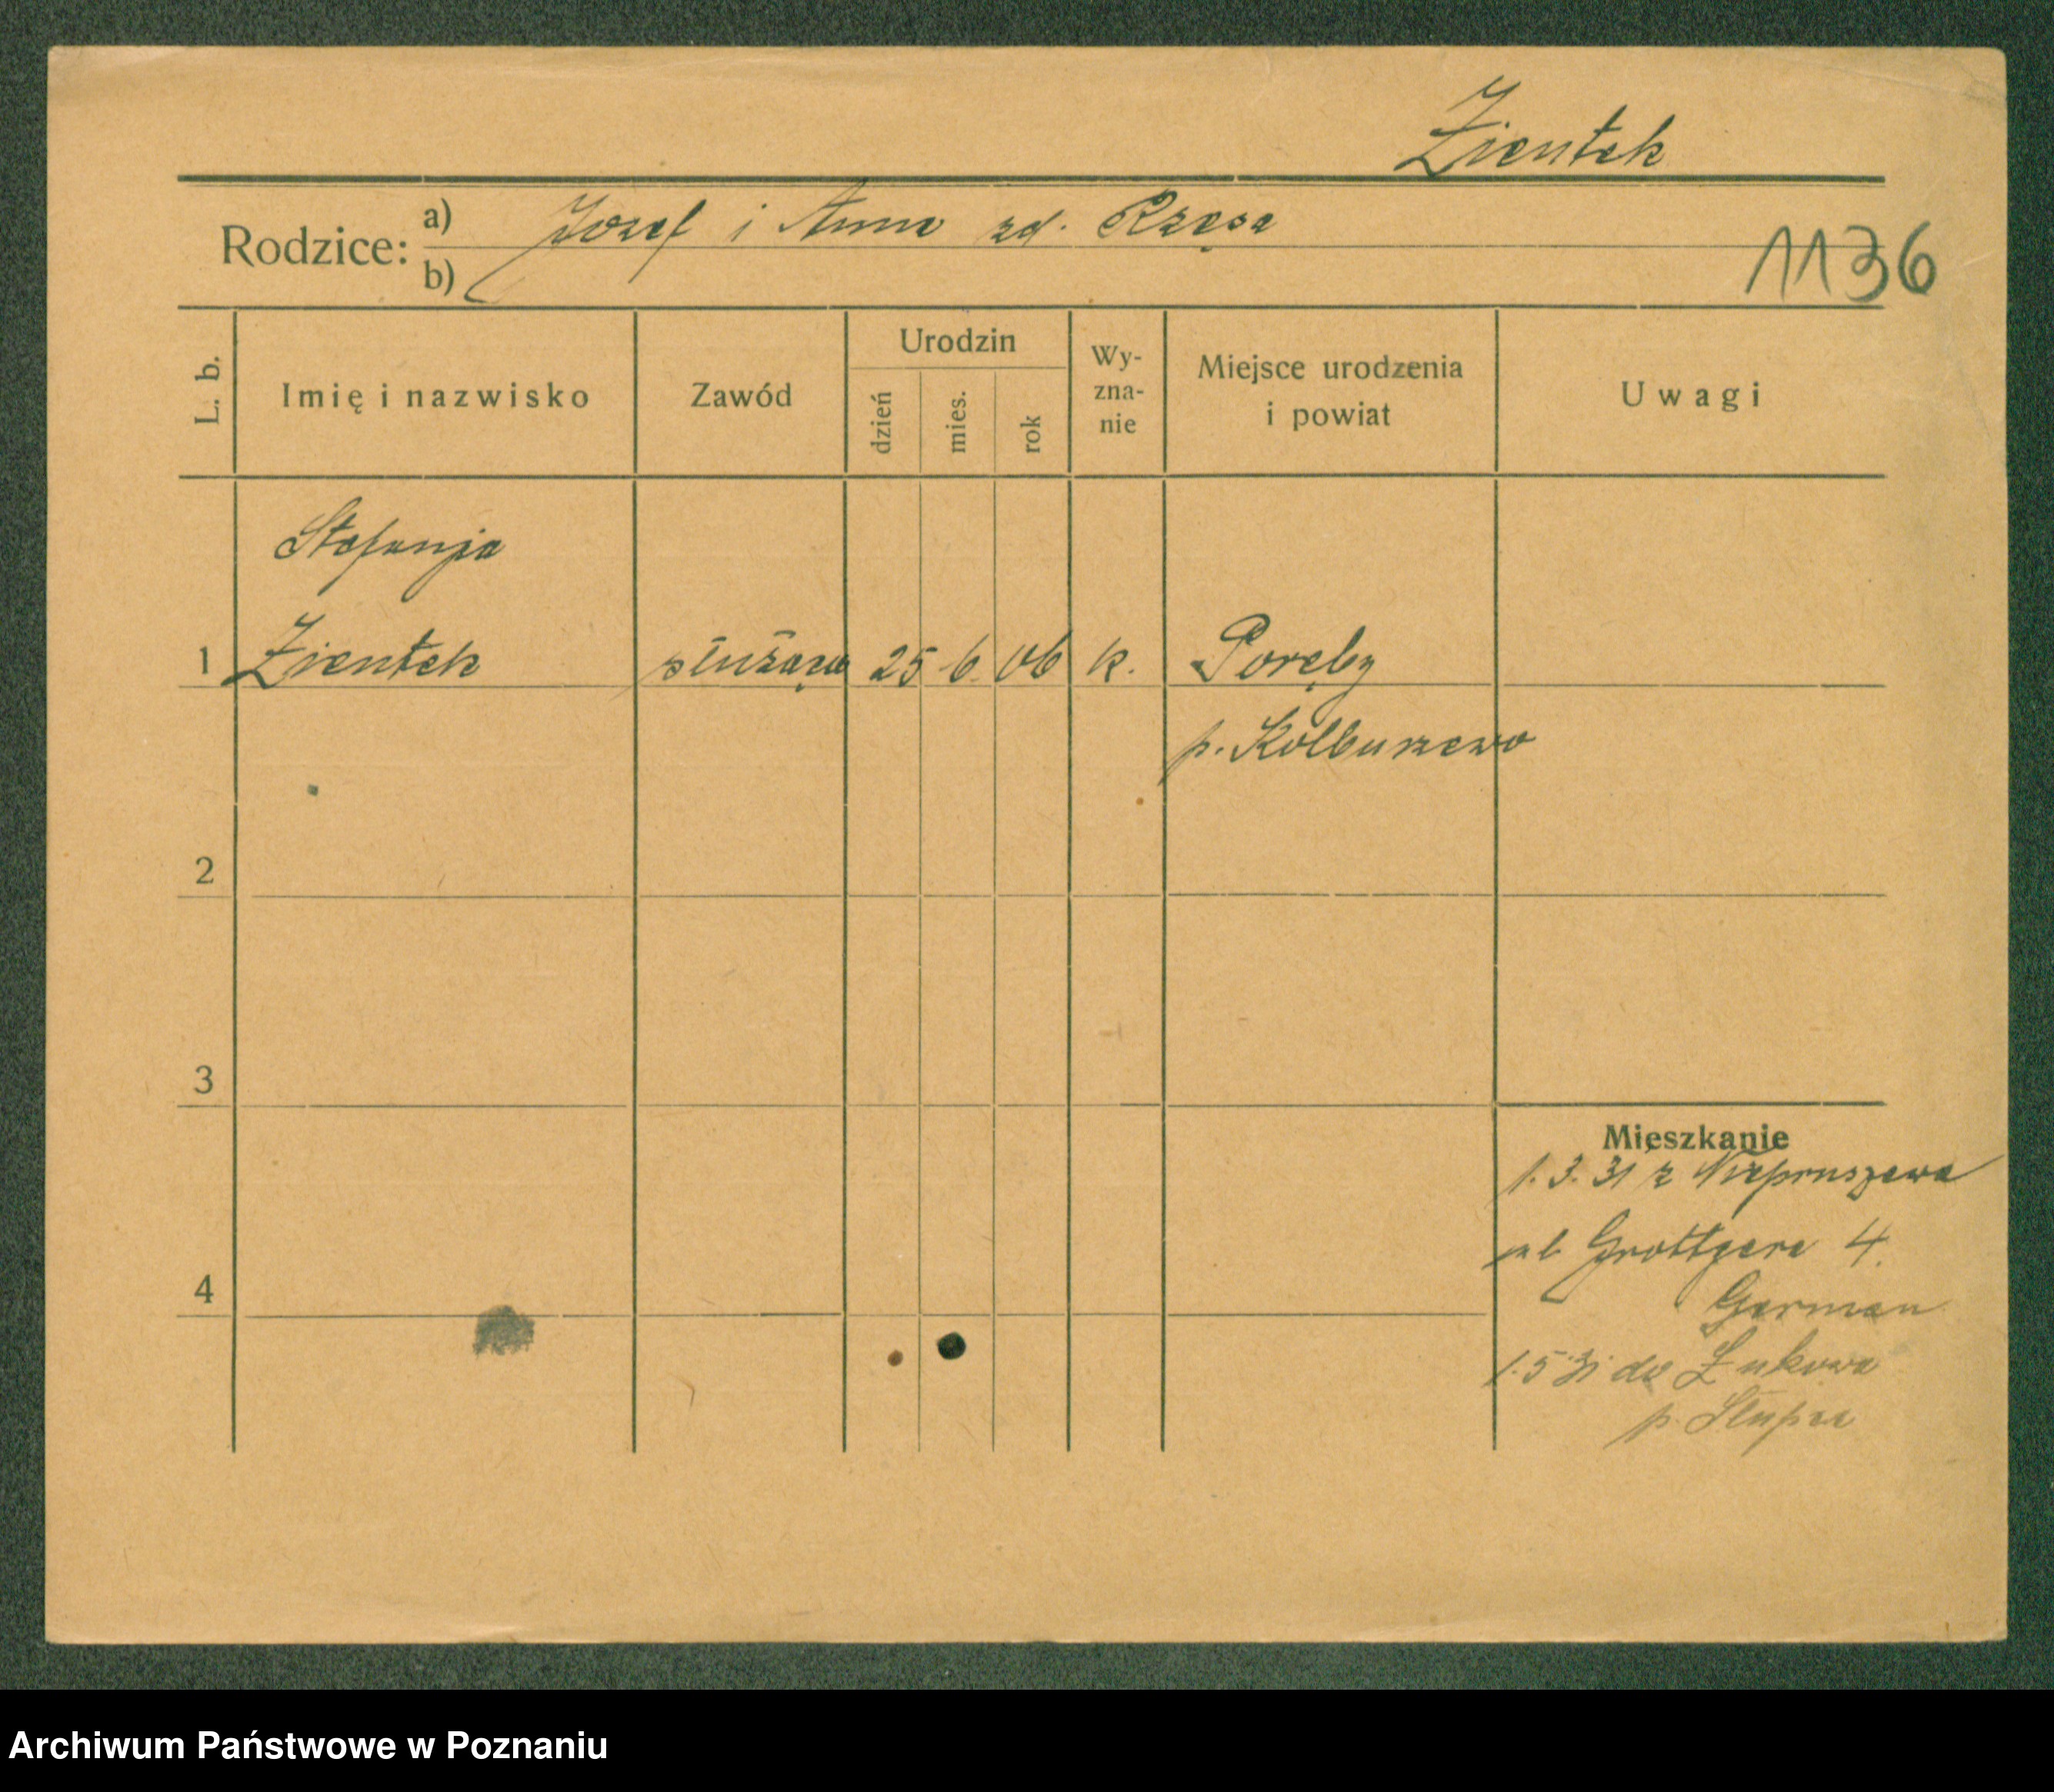 Zientek
Rodzice:
a) Jozef i Anna zd. Rzęsa
b)
1136
L. b.
Imię i nazwisko
Zawód
Urodzin
dzień
mies.
rok
Wy-
zna-
nie
Miejsce urodzenia
i powiat
Uwagi
Stefanja
1 Zientek służąca 25 6. 06 k. Poręby
p. Kolbuszewo
2
3
4
Mieszkanie
1.3.31 z Niepruszewa
ul Grottgera 4.
German
1.5 31 do Łukowa
p. Słupca
Archiwum Państwowe w Poznaniu